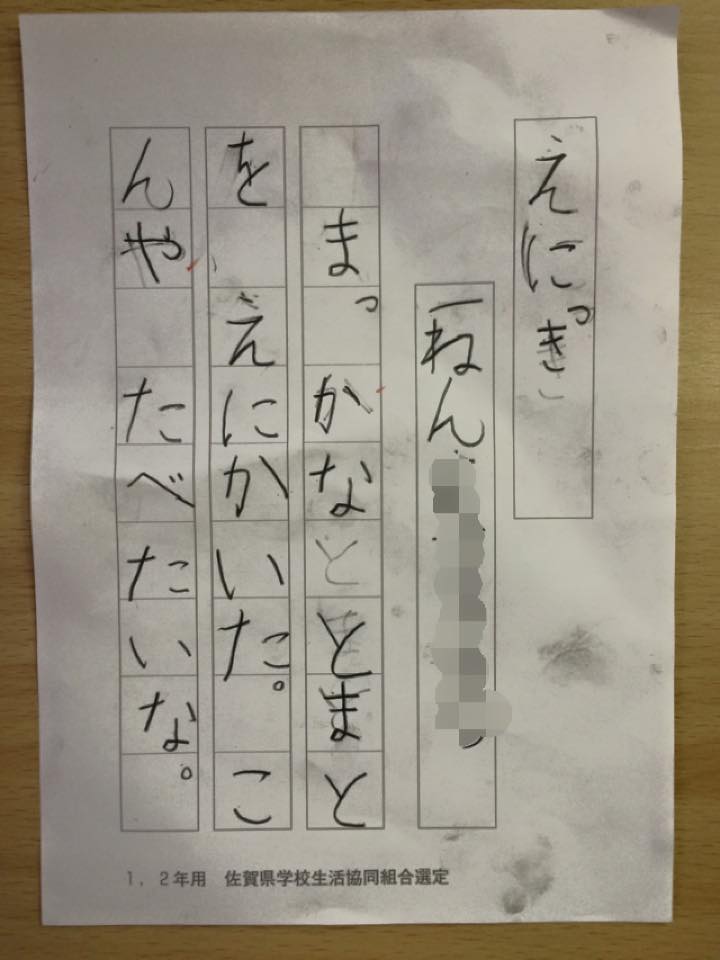 えにっき
一ねん
まっかなととまと
を えにかいた。 こ
んや たべたいな。
1，2年用 佐賀県学校生活協同組合選定